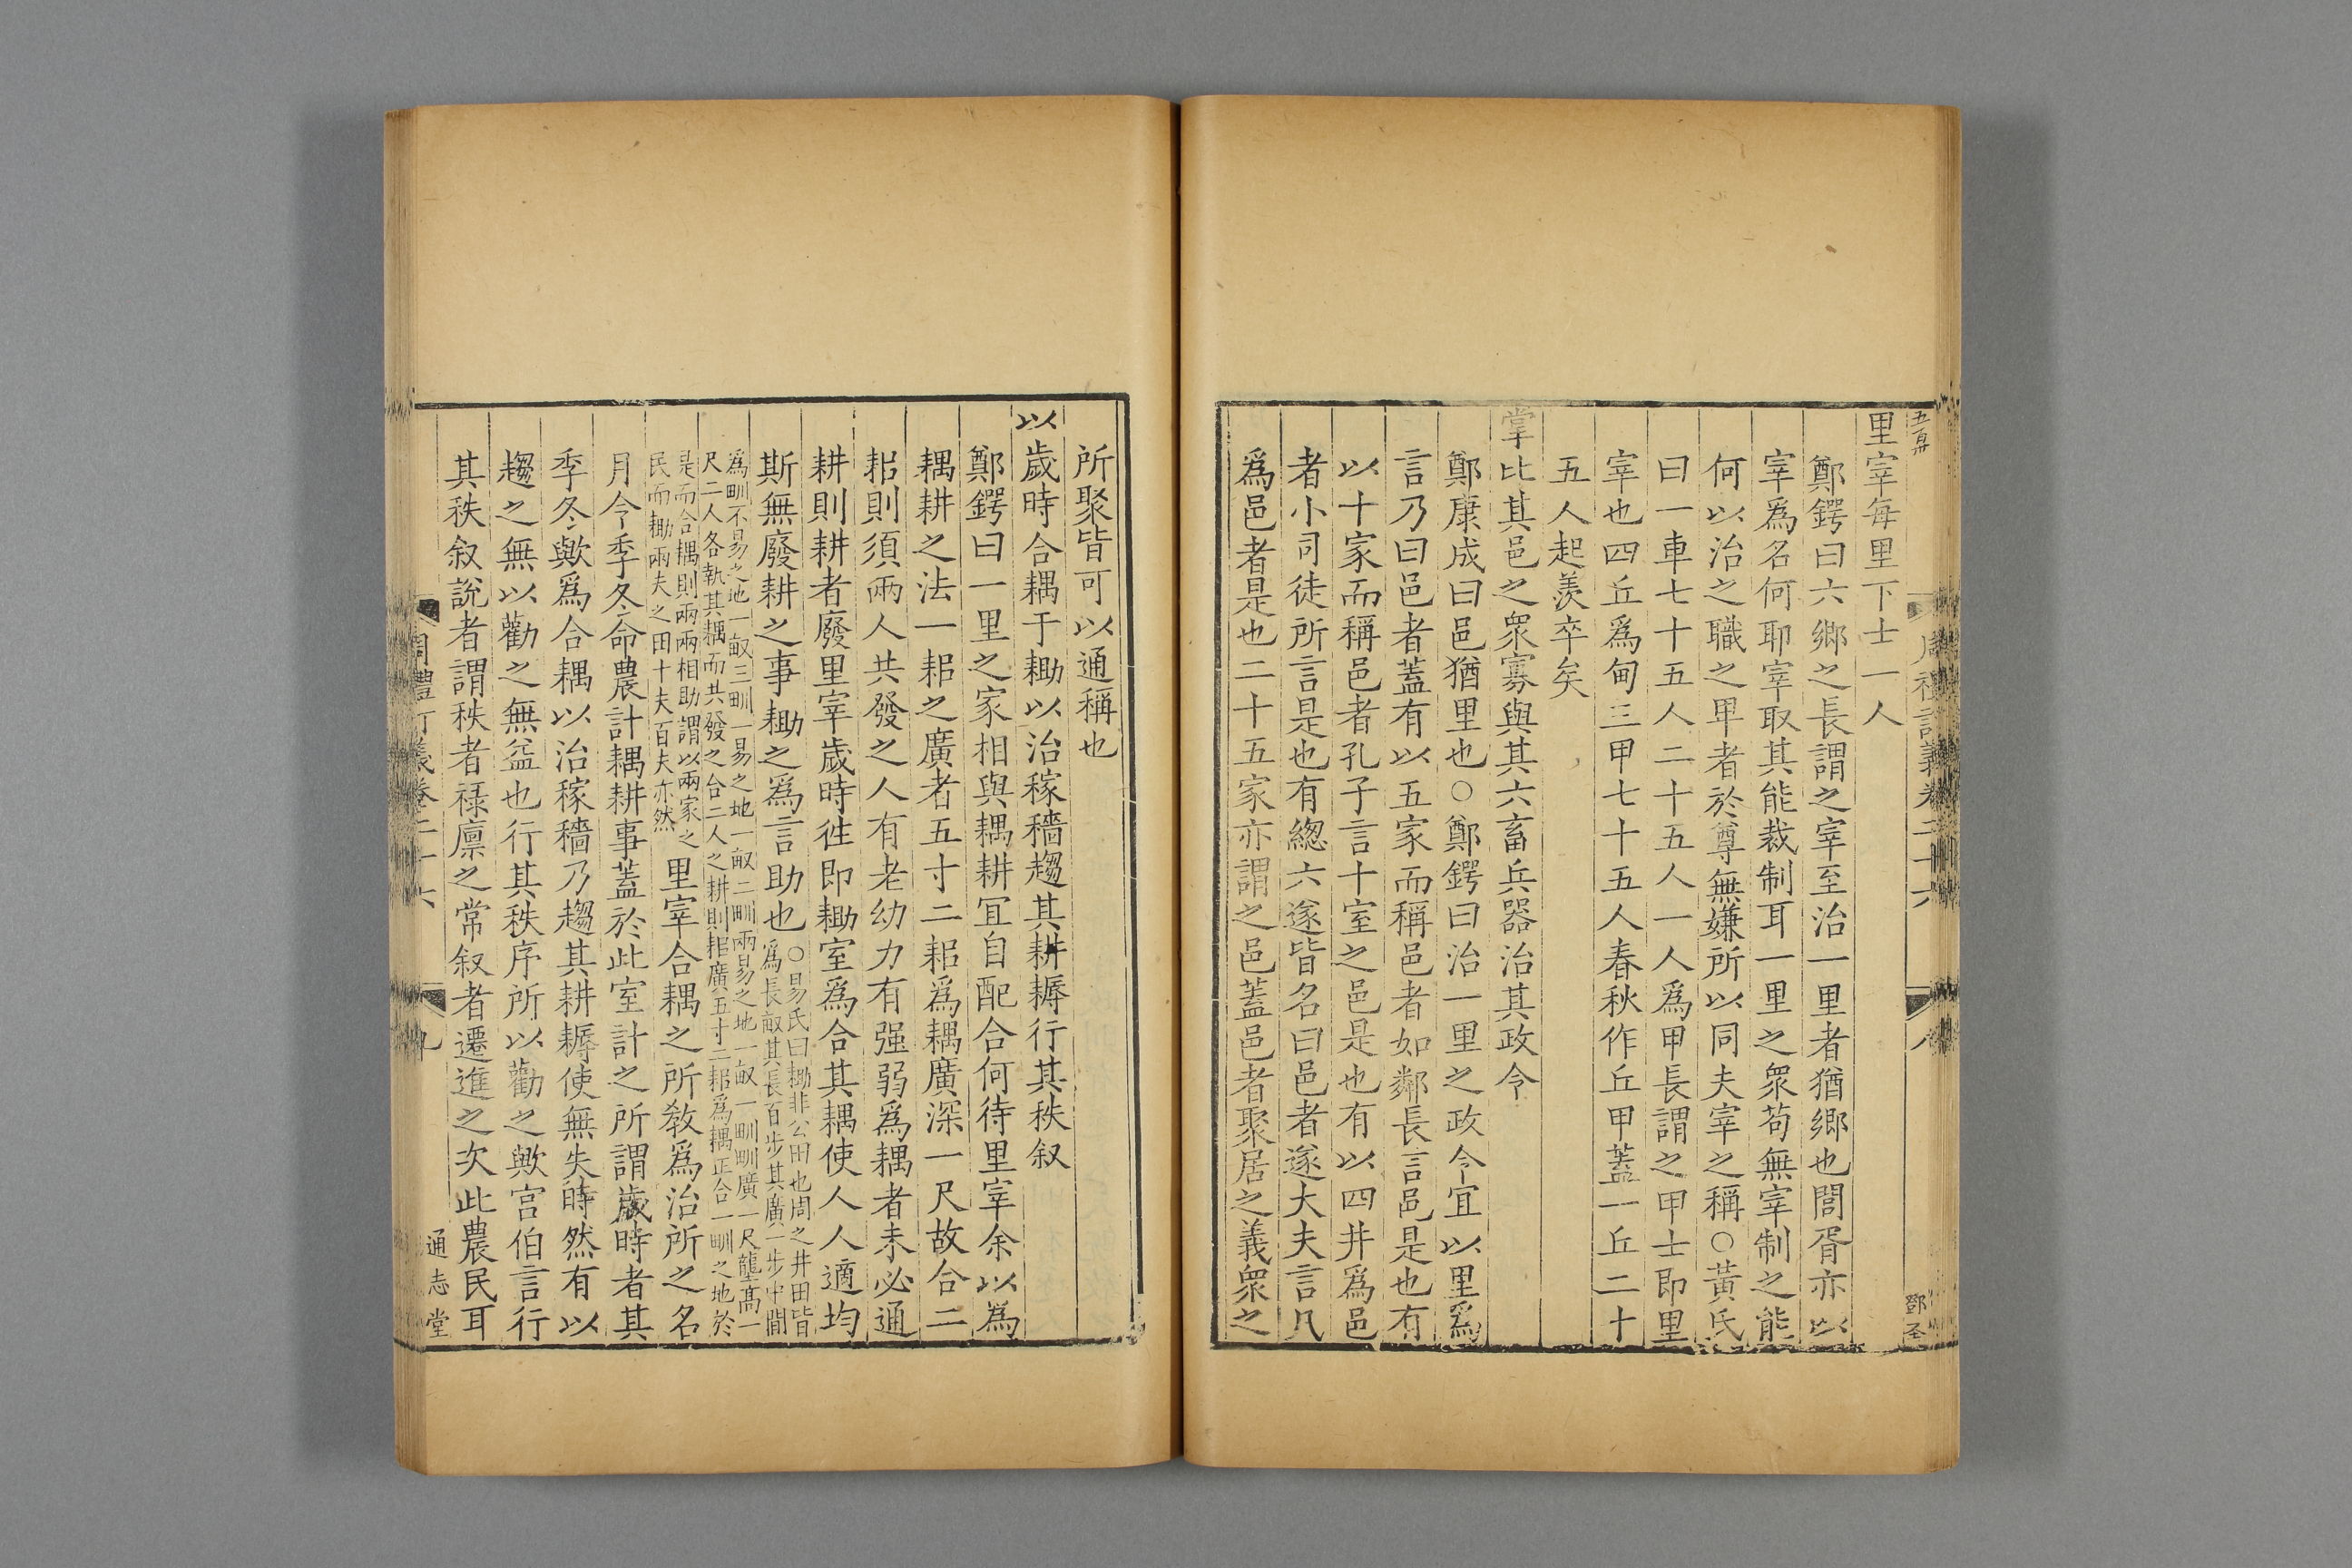 里宰每里下士一人
鄭鍔曰六鄉之長謂之宰至治一里者猶鄉也閭胥亦以
宰爲名何耶宰取其能裁制耳一里之衆苟無宰制之能
何以治之職之卑者於尊無嫌所以同夫宰之稱○黃氏
曰一車七十五人二十五人一人爲甲長謂之甲士即里
宰也四丘爲甸三甲七十五人春秋作丘甲蓋一丘二十
五人起羡卒矣
掌比其邑之衆寡與其六畜兵器治其政令
鄭康成曰邑猶里也○鄭鍔曰治一里之政令宜以里爲
言乃曰邑者蓋有以五家而稱邑者如鄰長言邑是也有
以十家而稱邑者孔子言十室之邑是也有以四井爲邑
者小司徒所言是也有總六遂皆名曰邑者遂大夫言凡
爲邑者是也二十五家亦謂之邑蓋邑者聚居之義衆之
周禮訂義卷二十六
八
鄧圣
所聚皆可以通稱也
以歲時合耦于耡以治稼穡趨其耕耨行其秩叙
鄭鍔曰一里之家相與耦耕宜自配合何待里宰余以爲
耦耕之法一耜之廣者五寸二耜爲耦廣深一尺故合二
耜則須兩人共發之人有老幼力有强弱爲耦者未必通
耕則耕者廢里宰歲時徃即耡室爲合其耦使人人適均
斯無廢耕之事耡之爲言助也○易氏曰耡非公田也周之井田皆
爲長畝其長百步其廣一步中間
爲甽不易之地一畝三甽一易之地一畝二甽兩易之地一畝一甽甽廣一尺壟高一
尺二人各執其耦而共發之合二人之耕則耜廣五寸二耜爲耦正合一甽之地於
是而合耦則兩兩相助謂以兩家之
民而耡兩夫之田十夫百夫亦然
里宰合耦之所教爲治所之名
月令季冬命農計耦耕事蓋於此室計之所謂歲時者其
季冬歟爲合耦以治稼穡乃趨其耕耨使無失時然有以
趨之無以勸之無益也行其秩序所以勸之歟宫伯言行
其秩叙說者謂秩者祿廪之常叙者遷進之次此農民耳
周禮訂義卷二十六
九
通志堂